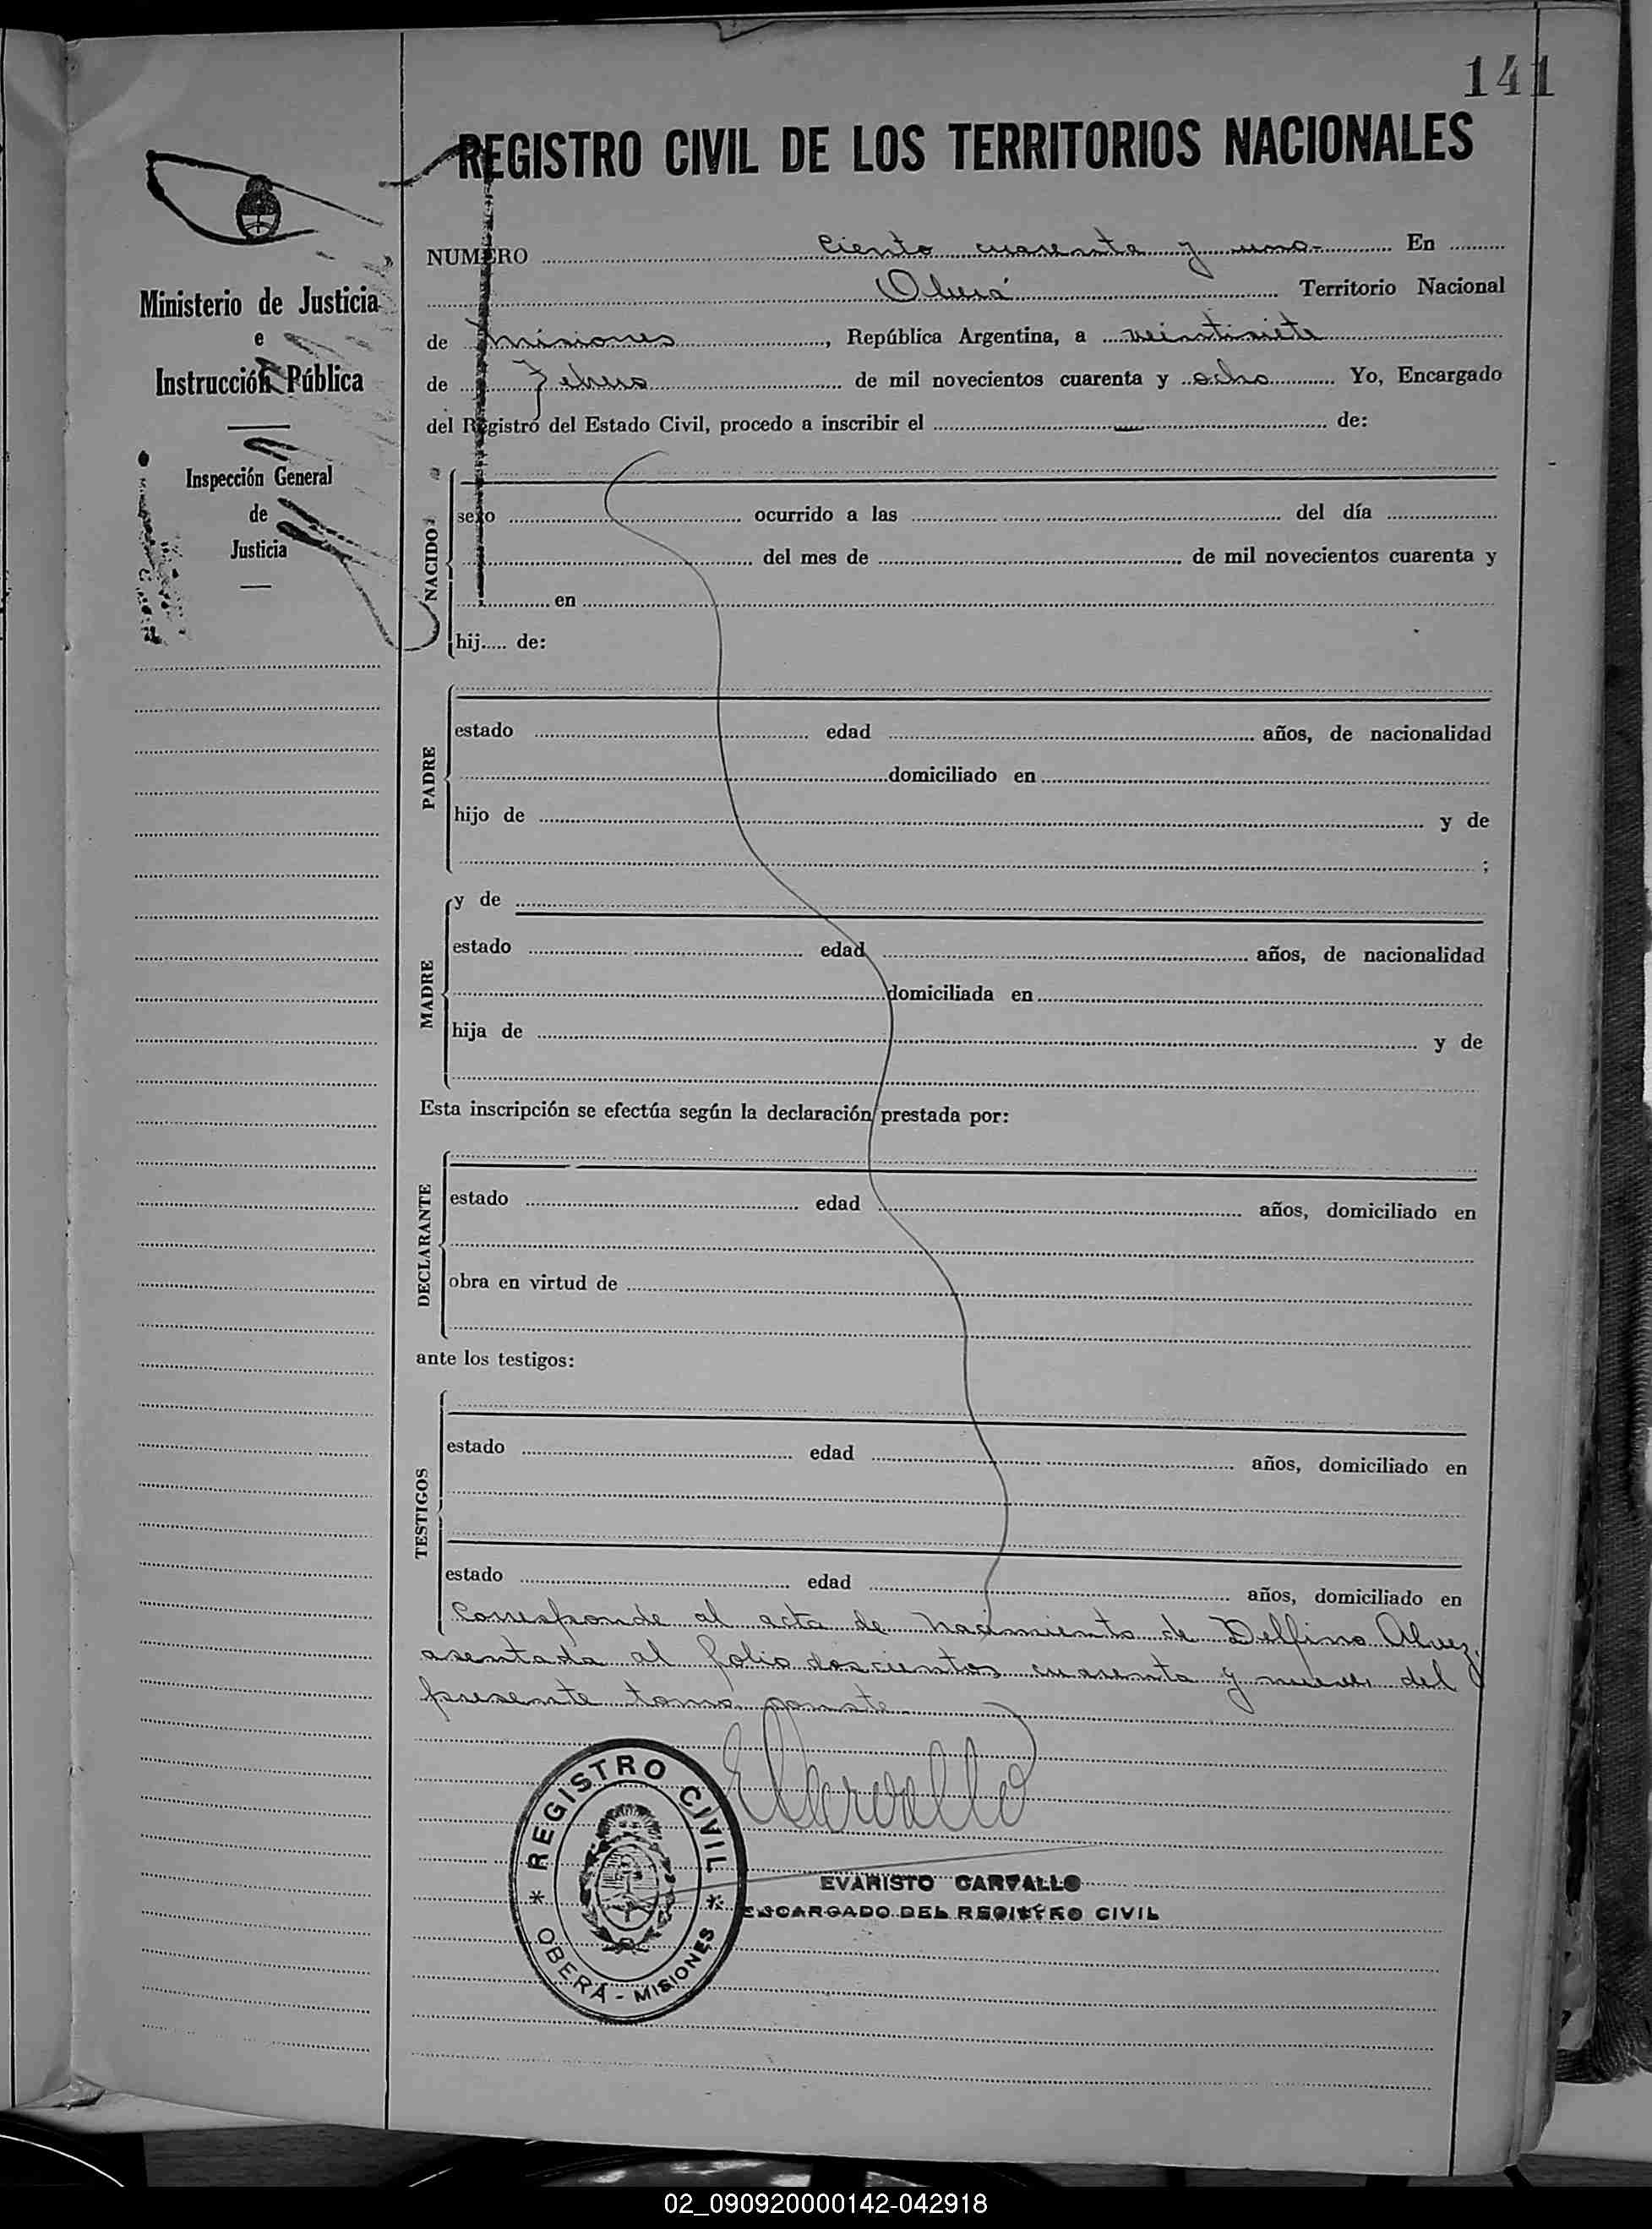 141
REGISTRO CIVIL DE LOS TERRITORIOS NACIONALES
Ministerio de Justicia
e
Instrucción Pública
Inspección General
de
Justicia
NUMERO Ciento cuarenta y uno En
Oberá Territorio Nacional
de Misiones, República Argentina, a veintisiete
de Febrero de mil novecientos cuarenta y ocho Yo, Encargado
del Registro del Estado Civil, procedo a inscribir el de:
NACIDO
sexo ocurrido a las del día
del mes de de mil novecientos cuarenta y
en
hij..... de:
PADRE
estado edad años, de nacionalidad
domiciliado en
hijo de y de
;
MADRE
y de
estado edad años, de nacionalidad
domiciliada en
hija de y de
Esta inscripción se efectúa según la declaración prestada por:
DECLARANTE
estado edad años, domiciliado en
obra en virtud de
ante los testigos:
TESTIGOS
estado edad años, domiciliado en
estado edad años, domiciliado en
Corresponde al acta de nacimiento de Delfino Alvez,
asentada al folio doscientos cuarenta y nueve del
presente tomo conste
ECarvallo
REGISTRO CIVIL
* OBERÁ - MISIONES *
EVARISTO CARVALLO
ENCARGADO DEL REGISTRO CIVIL
02_090920000142-042918